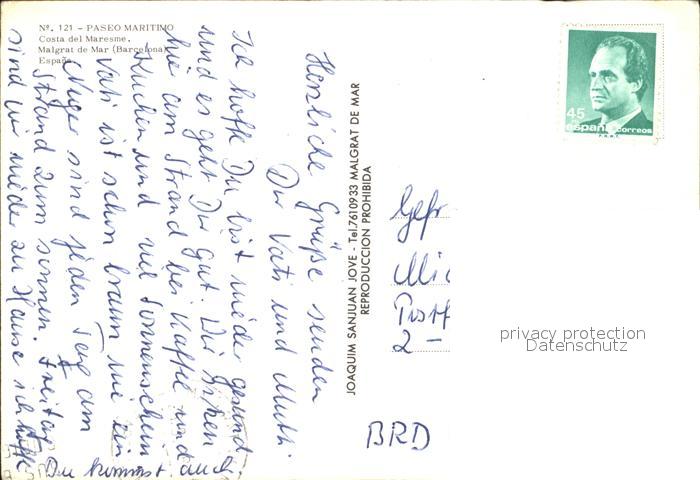 Nº. 121 - PASEO MARITIMO
Costa del Maresme.
Malgrat de Mar (Barcelona)
España
Ich hoffe Du bist wieder gesund
und es geht Dir gut. Wir sitzen
hie am Strand bei Kaffee und
Kuchen und viel Sonnenschein
Vati ist schon braun wie ein
Neger sind jeden Tag am
Strand zum sonnen. Freitag
sind wir wieder zu Hause ich hoffe
Du kommst auch.
Herzliche Grüße senden
Dir Vati und Mutti
JOAQUIM SANJUAN JOVE - Tel.7610933 MALGRAT DE MAR
REPRODUCCION PROHIBIDA
45
españa correos
Gefr
Mic
Postf
2 -
BRD
privacy protection
Datenschutz